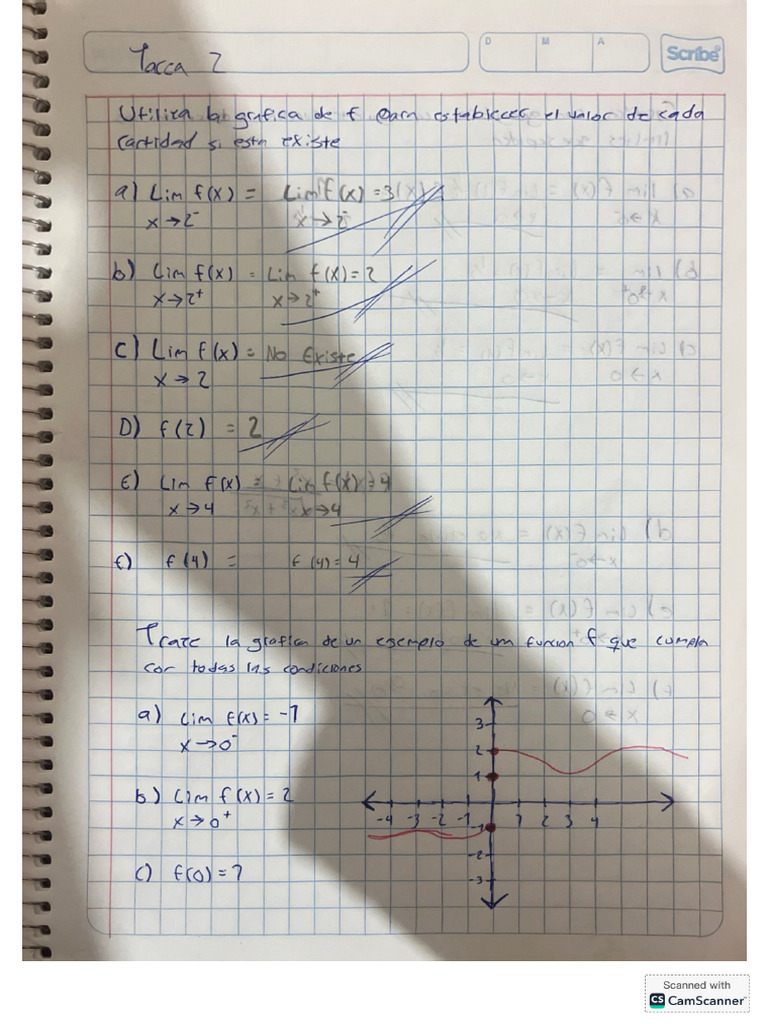 Tarea 2
D M A
Scribe
Utiliza la grafica de f para establecer el valor de cada
cantidad si esta existe
a) Lim f(x) = Lim f(x) = 3
x→2⁻ x→2⁻
b) Lim f(x) = Lim f(x) = 2
x→2⁺ x→2⁺
C) Lim f(x) = No Existe
x→2
D) f(2) = 2
E) Lim f(x) = Lim f(x) = 4
x→4 x→4
f) f(4) = f(4) = 4
Trace la grafica de un ejemplo de una funcion f que cumpla
con todas las condiciones
a) Lim f(x) = -1
x→0⁻
b) Lim f(x) = 2
x→0⁺
c) f(0) = 1
3
2
1
-4 -3 -2 -1 1 2 3 4
-1
-2
-3
Scanned with
CS CamScanner